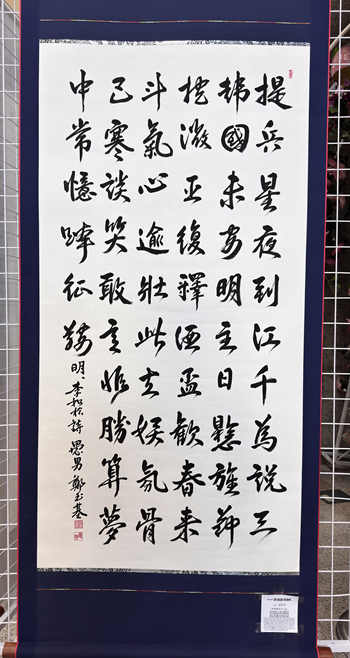 提兵星夜到江千為説三
韓國未安明主日懸旌節
報微臣復釋酒盃歡春来
斗氣心逾壯此去妖氛骨
已寒談笑敢言非勝算夢
中常憶跨征鞍
明、李如松詩 愚男 鄭玉基